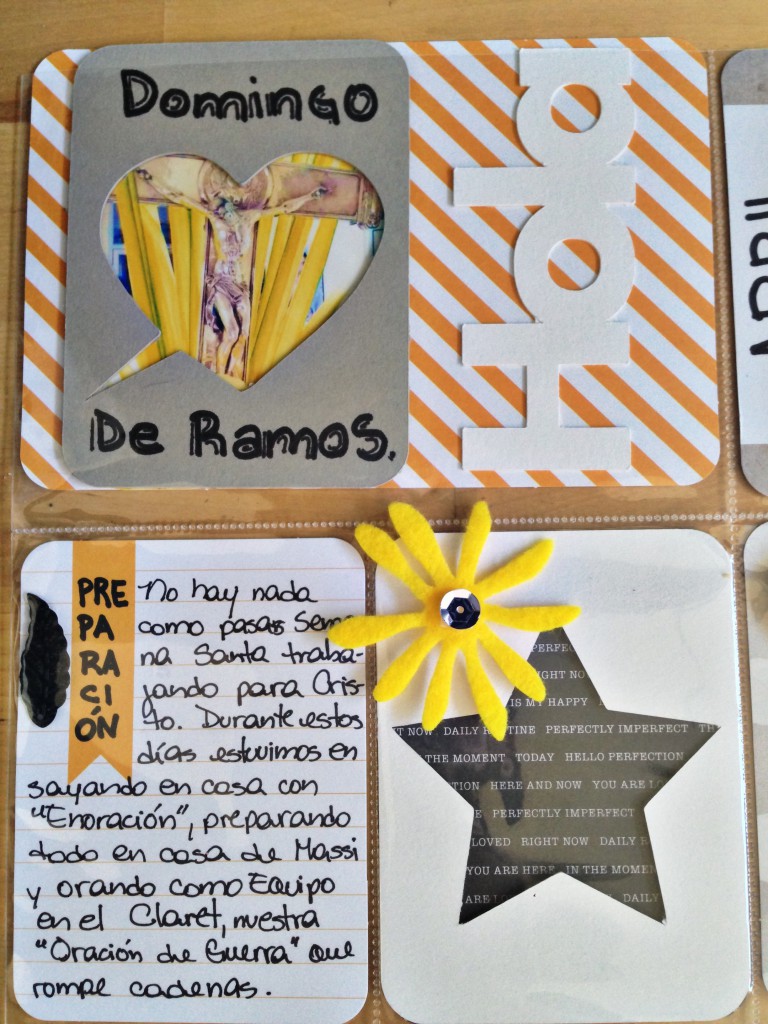 Domingo
De Ramos.
Hola
PRE
PA
RA
CI
ÓN
No hay nada
como pasar Sema
na Santa traba-
jando para Cris-
to. Durante estos
días estuvimos en
sayando en casa con
"Enoración", preparando
todo en casa de Massi
y orando como Equipo
en el Claret, nuestra
"Oración de Guerra" que
rompe cadenas.
PERFEC
RIGHT NO
IS MY HAPPY
T NOW DAILY R TINE PERFECTLY IMPERFECT TH
THE MOMENT TODAY HELLO PERFECTION
TION HERE AND NOW YOU ARE LO
E PERFECTLY IMPERFECT
LOVED RIGHT NOW DAILY R
YOU ARE HERE IN THE MOMEN
ARE LO DAILY